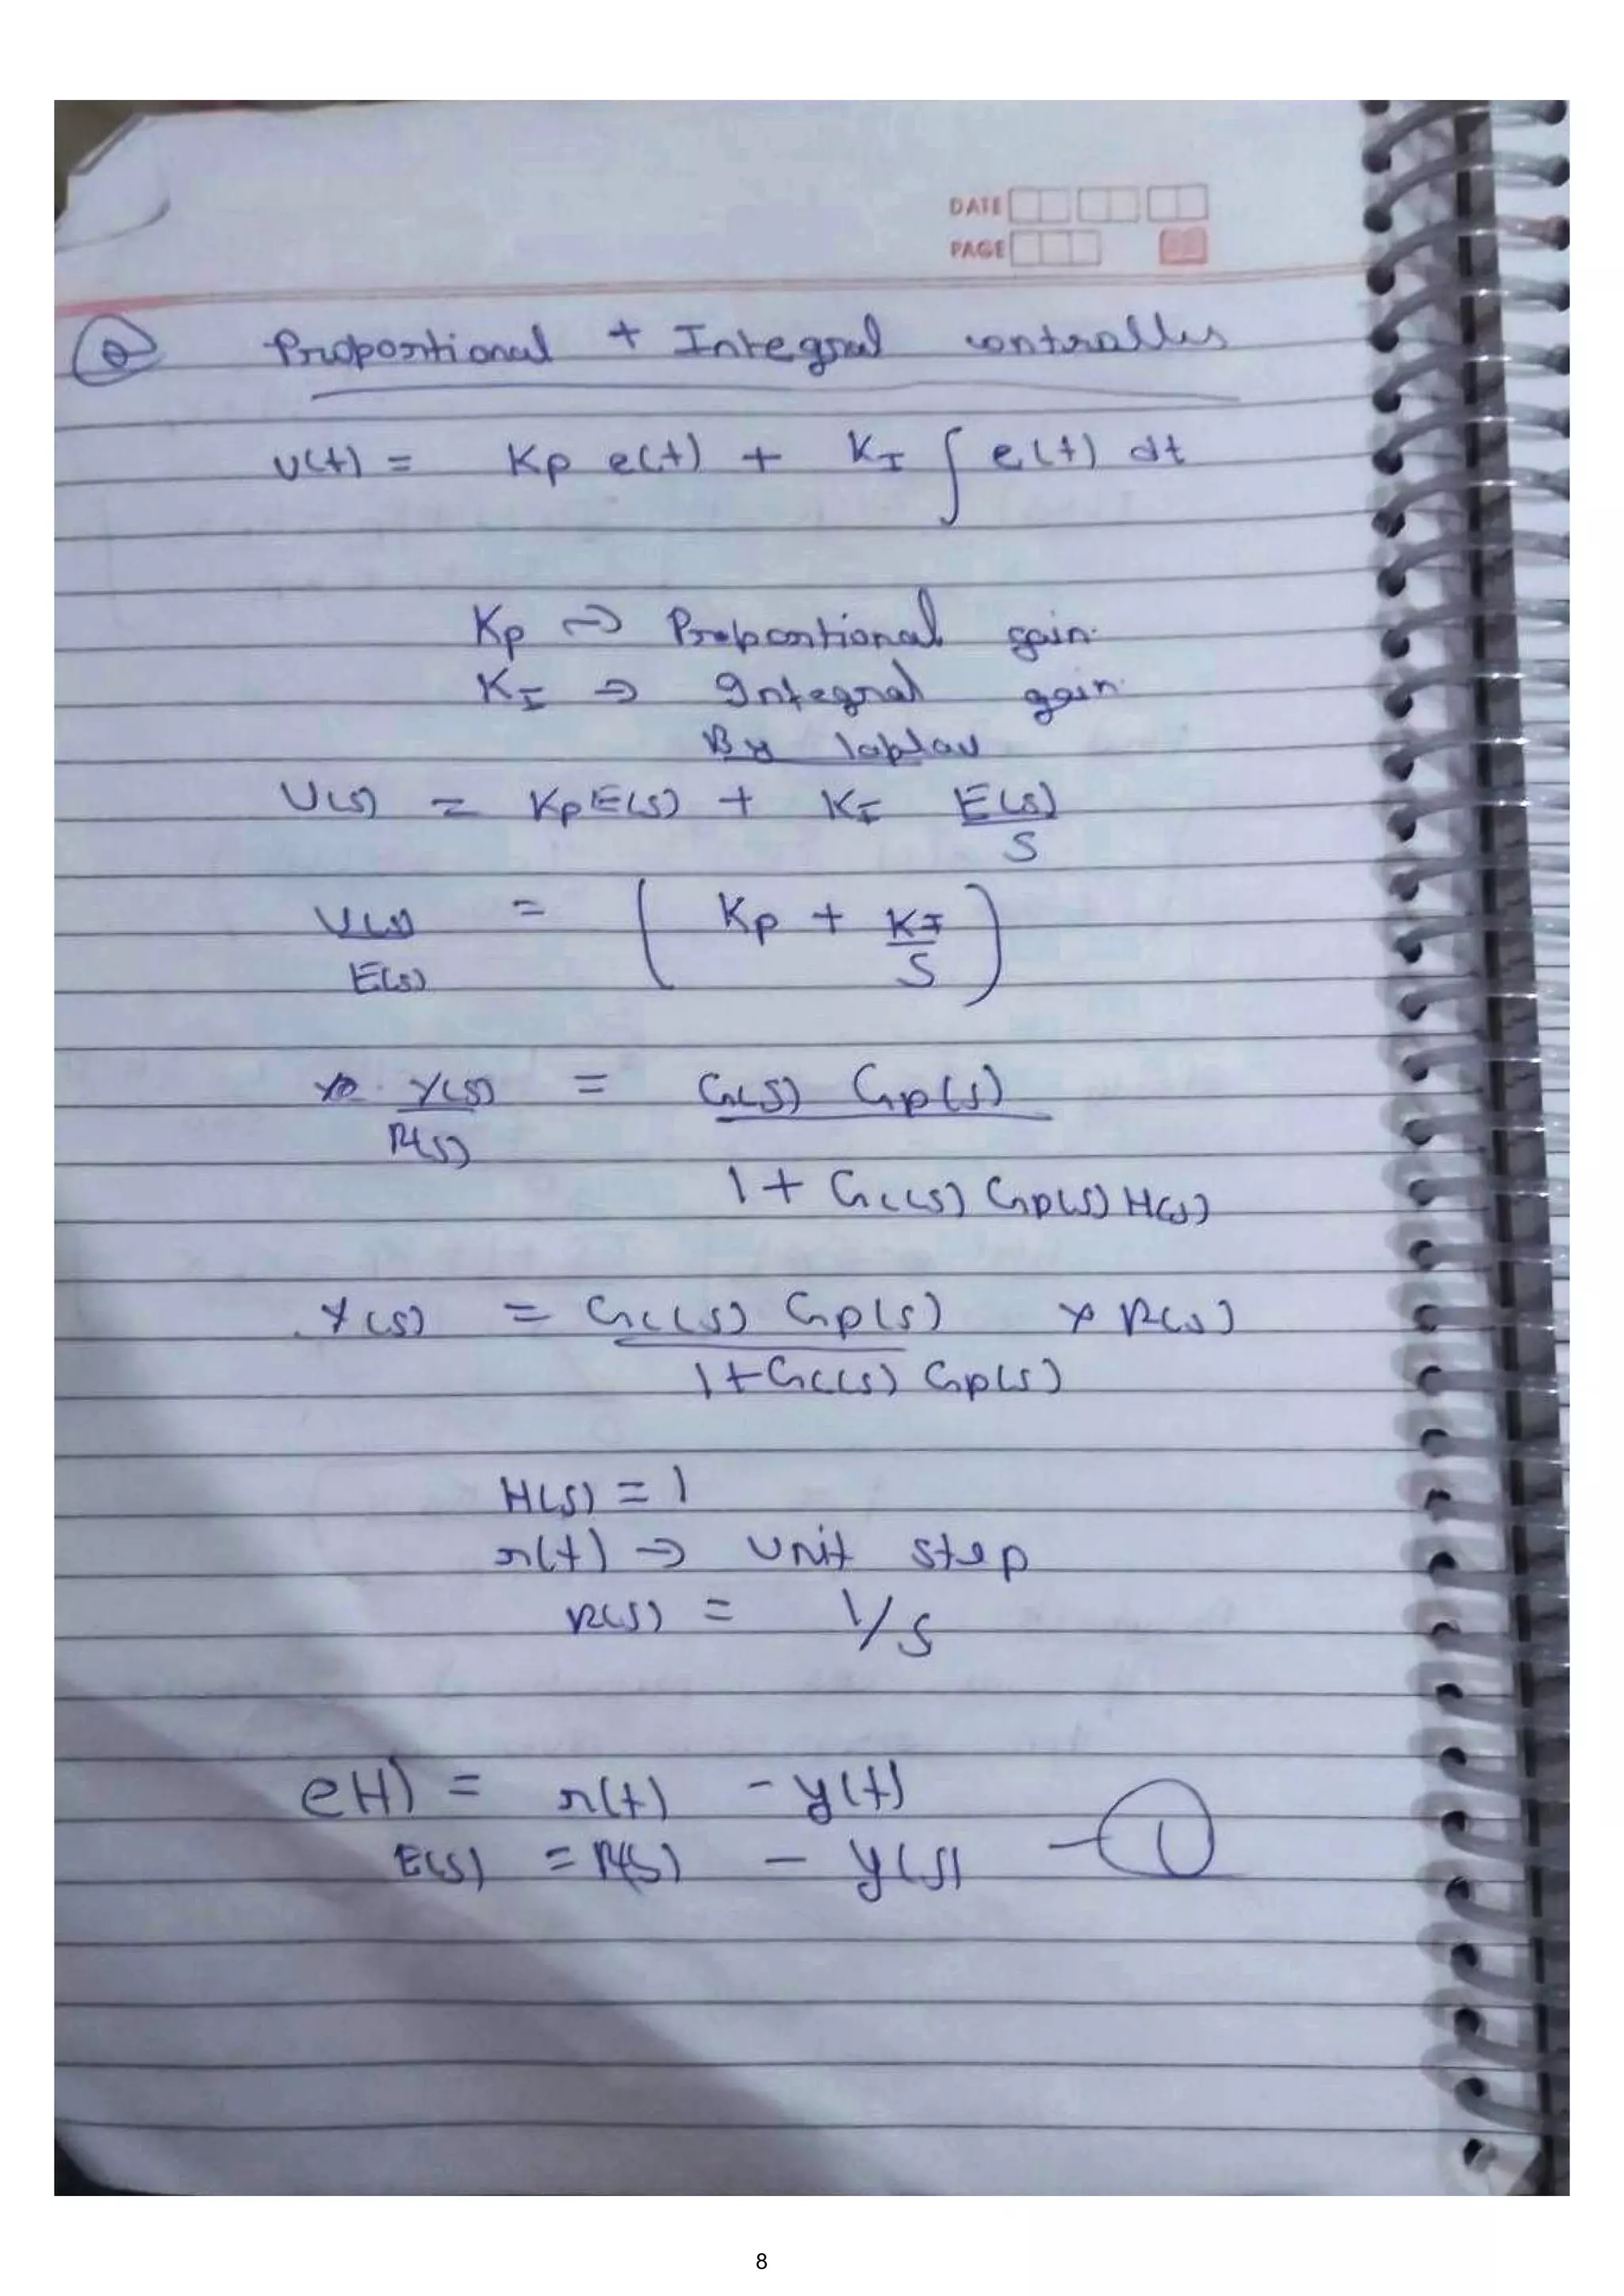 DATE
PAGE
② Proportional + Integral controller
u(t) = Kp e(t) + KI ∫ e(t) dt
Kp → Proportional gain.
KI ⇒ Integral gain.
By laplace
U(s) = KpE(s) + KI E(s)/S
U(s)/E(s) = ( Kp + KI/S )
Y(s)/R(s) = G(s) Gp(s) / 1 + Gc(s) Gp(s) H(s)
Y(s) = Gc(s) Gp(s) / 1+Gc(s) Gp(s) × R(s)
H(s) = 1
r(t) → unit step
R(s) = 1/s
e(t) = r(t) - y(t)
E(s) = R(s) - y(s) - ①
8